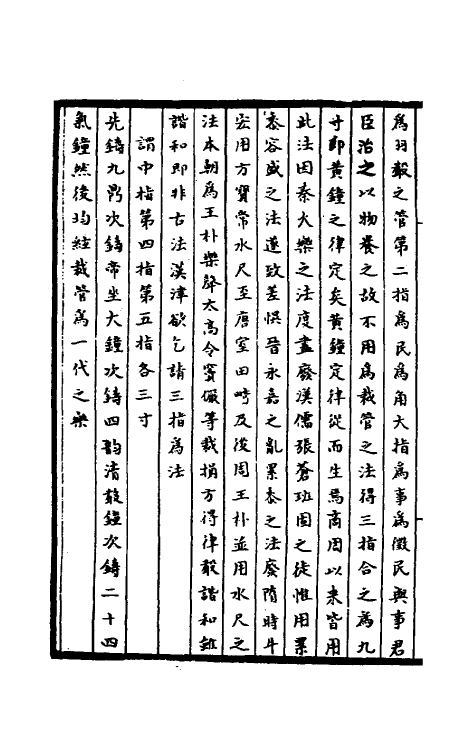 為羽聲之管第二指為民為角大指為事為徵民與事君
臣治之以物養之故不用為裁管之法得三指合之為九
寸即黃鐘之律定矣黃鐘定律從而生焉商周以來皆用
此法因秦火樂之法度盡廢漢儒張蒼班固之徒惟用累
黍容盛之法遂致差悞晉永嘉之亂累黍之法廢隋時牛
宏用方寶常水尺至唐室田畸及後周王朴並用水尺之
法本朝為王朴樂聲太高令竇儼等裁損方得律聲諧和雖
諧和即非古法漢津欲乞請三指為法
謂中指第四指第五指各三寸
先鑄九鼎次鑄帝坐大鐘次鑄四韵清聲鐘次鑄二十四
氣鐘然後均絃裁管為一代之樂